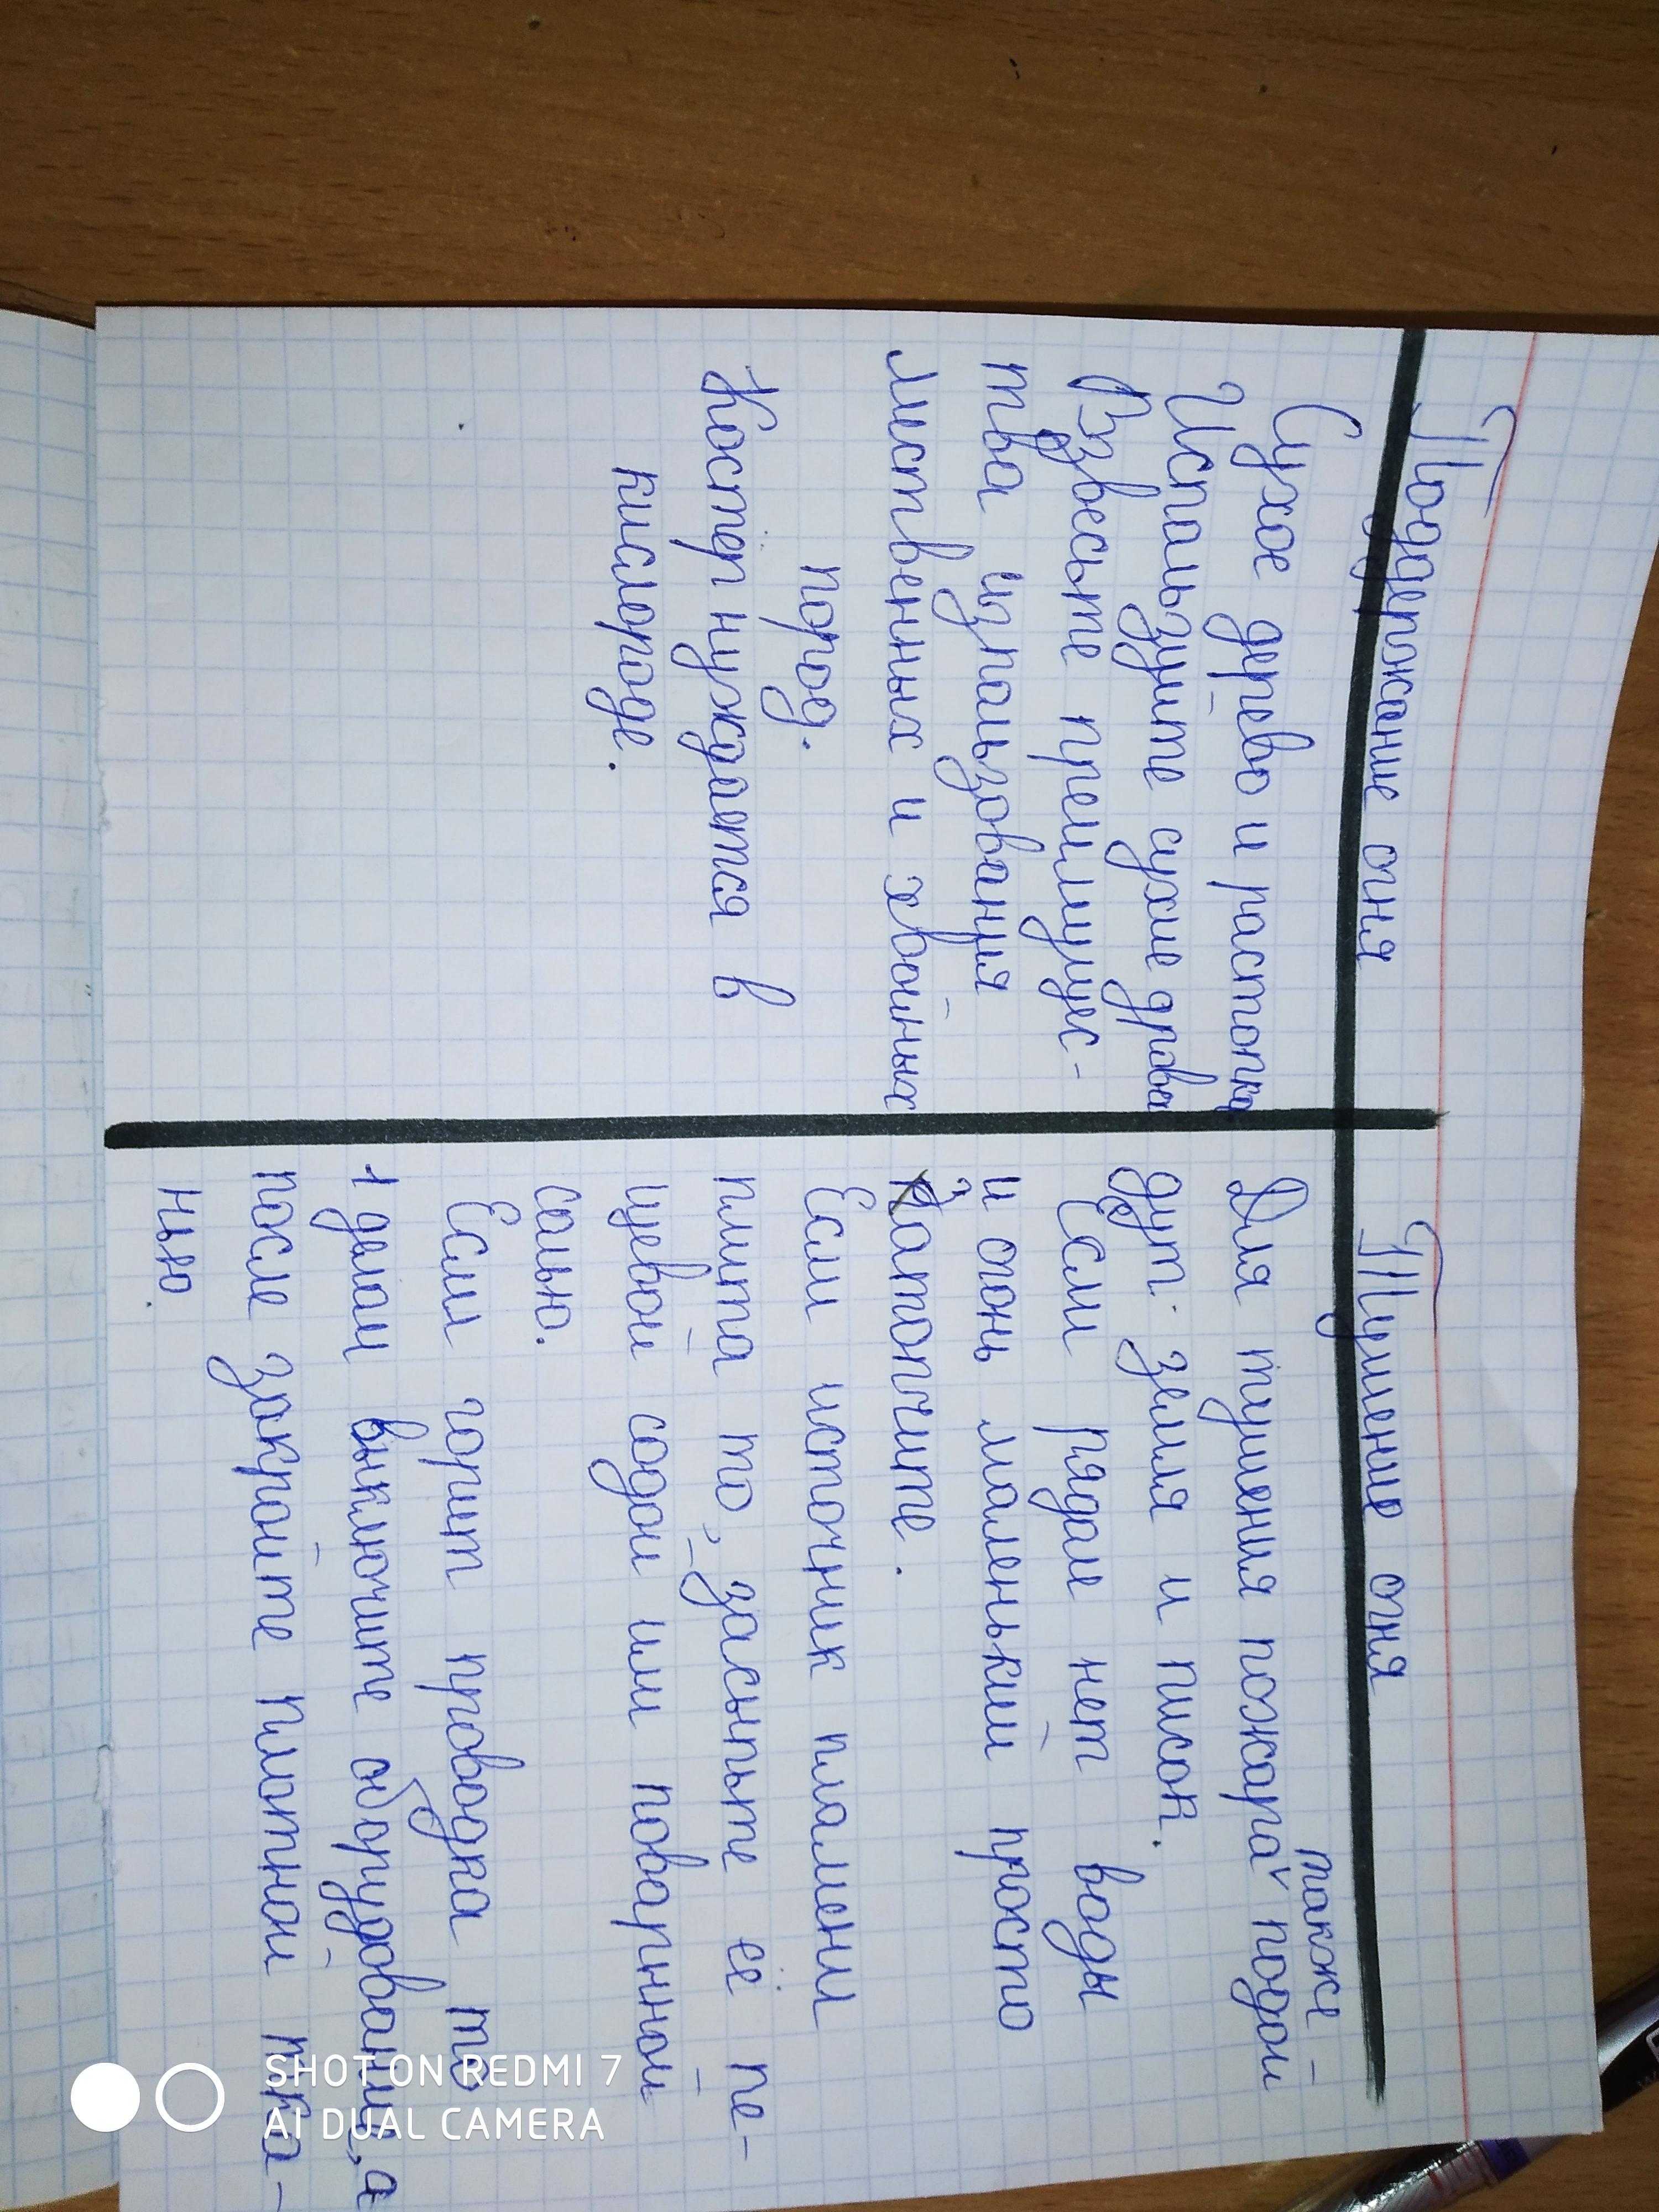 Поддержание огня
Сухое дерево и растопка
Используйте сухие дрова
Взвесьте преимущес-
тва изпользования
лиственных и хвойных
пород.
Костёр нуждается в
кислороде.
Тушение огня
также
Для тушения пожара подой-
дут: земля и писок.
Если рядом нет воды
и огонь маленький просто
затопчите.
Если источник пламени
плита то, засыпьте её пе-
щевой содой или поварной
солью.
Если горит проводка то
1 делом выключите оборудование, а
после закройте плотной тка-
нью.
SHOT ON REDMI 7
AI DUAL CAMERA